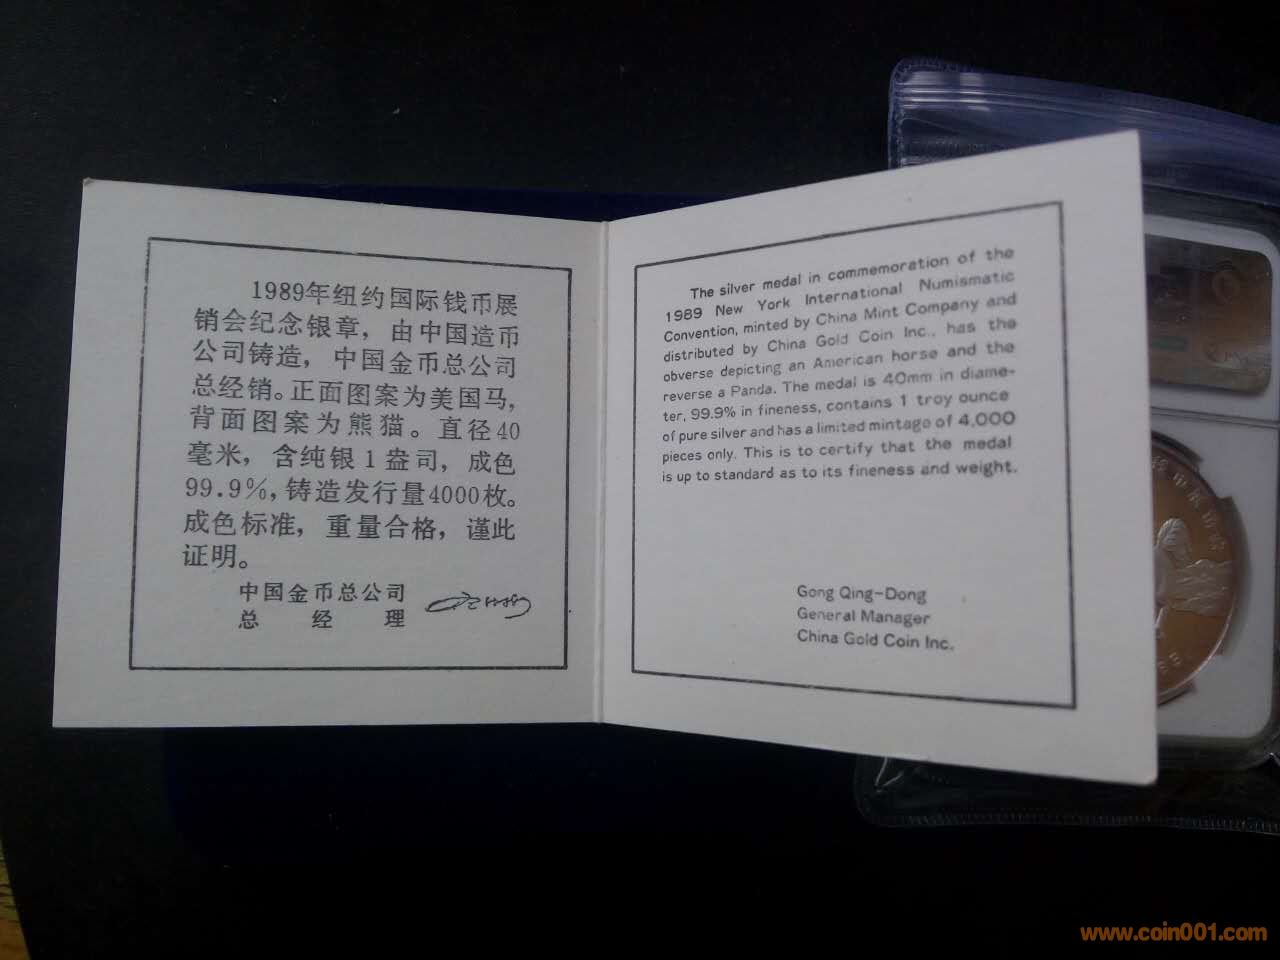 1989年纽约国际钱币展
销会纪念银章，由中国造币
公司铸造，中国金币总公司
总经销。正面图案为美国马，
背面图案为熊猫。直径40
毫米，含纯银1盎司，成色
99.9%，铸造发行量4000枚。
成色标准，重量合格，谨此
证明。
中国金币总公司
总经理
The silver medal in commemoration of the
1989 New York International Numismatic
Convention, minted by China Mint Company and
distributed by China Gold Coin Inc., has the
obverse depicting an American horse and the
reverse a Panda. The medal is 40mm in diame-
ter, 99.9% in fineness, contains 1 troy ounce
of pure silver and has a limited mintage of 4,000
pieces only. This is to certify that the medal
is up to standard as to its fineness and weight.
Gong Qing-Dong
General Manager
China Gold Coin Inc.
www.coin001.com